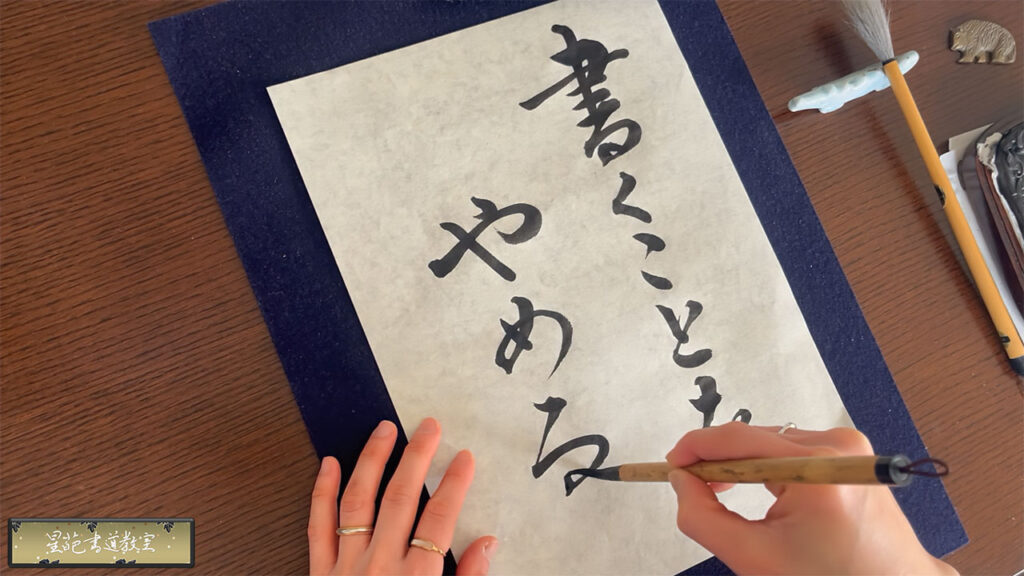 書くことを
やめる
書道教室